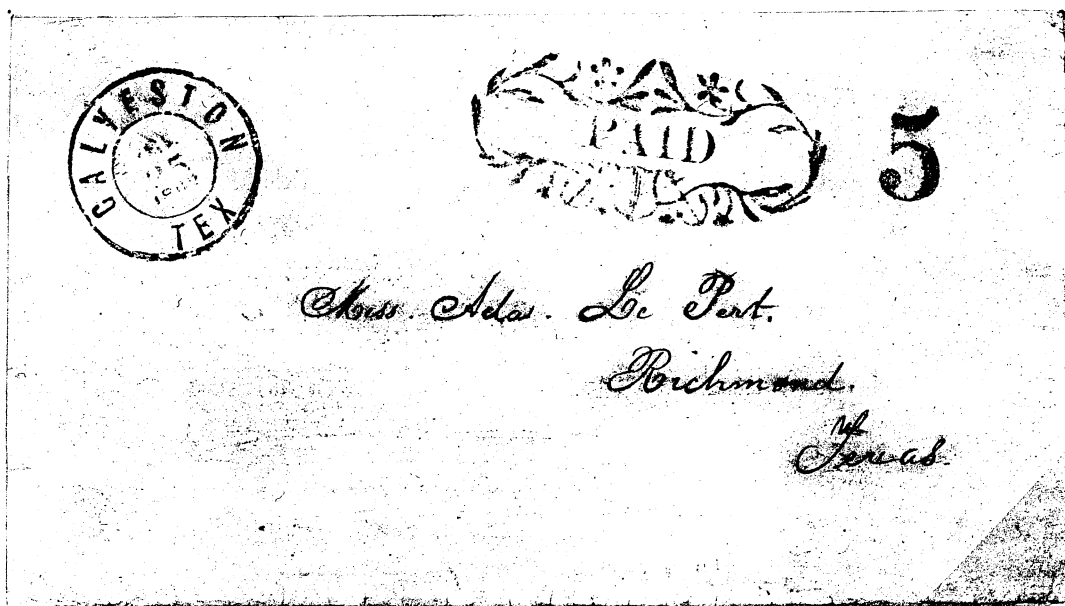 GALVESTON
TEX
PAID
5
Miss. Ada. Le Pert.
Richmond.
Texas.